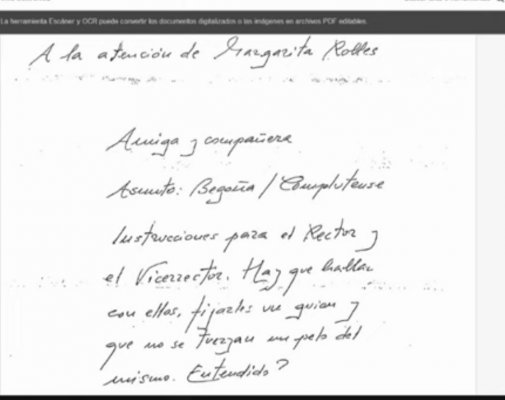 La herramienta Escáner y OCR puede convertir los documentos digitalizados o las imágenes en archivos PDF editables.
A la atención de Margarita Robles
Amiga y compañera
Asunto: Begoña / Complutense
Instrucciones para el Rector y
el Vicerrector. Hay que hablar
con ellos, fijarles un guion y
que no se tuerzan un pelo del
mismo. Entendido?